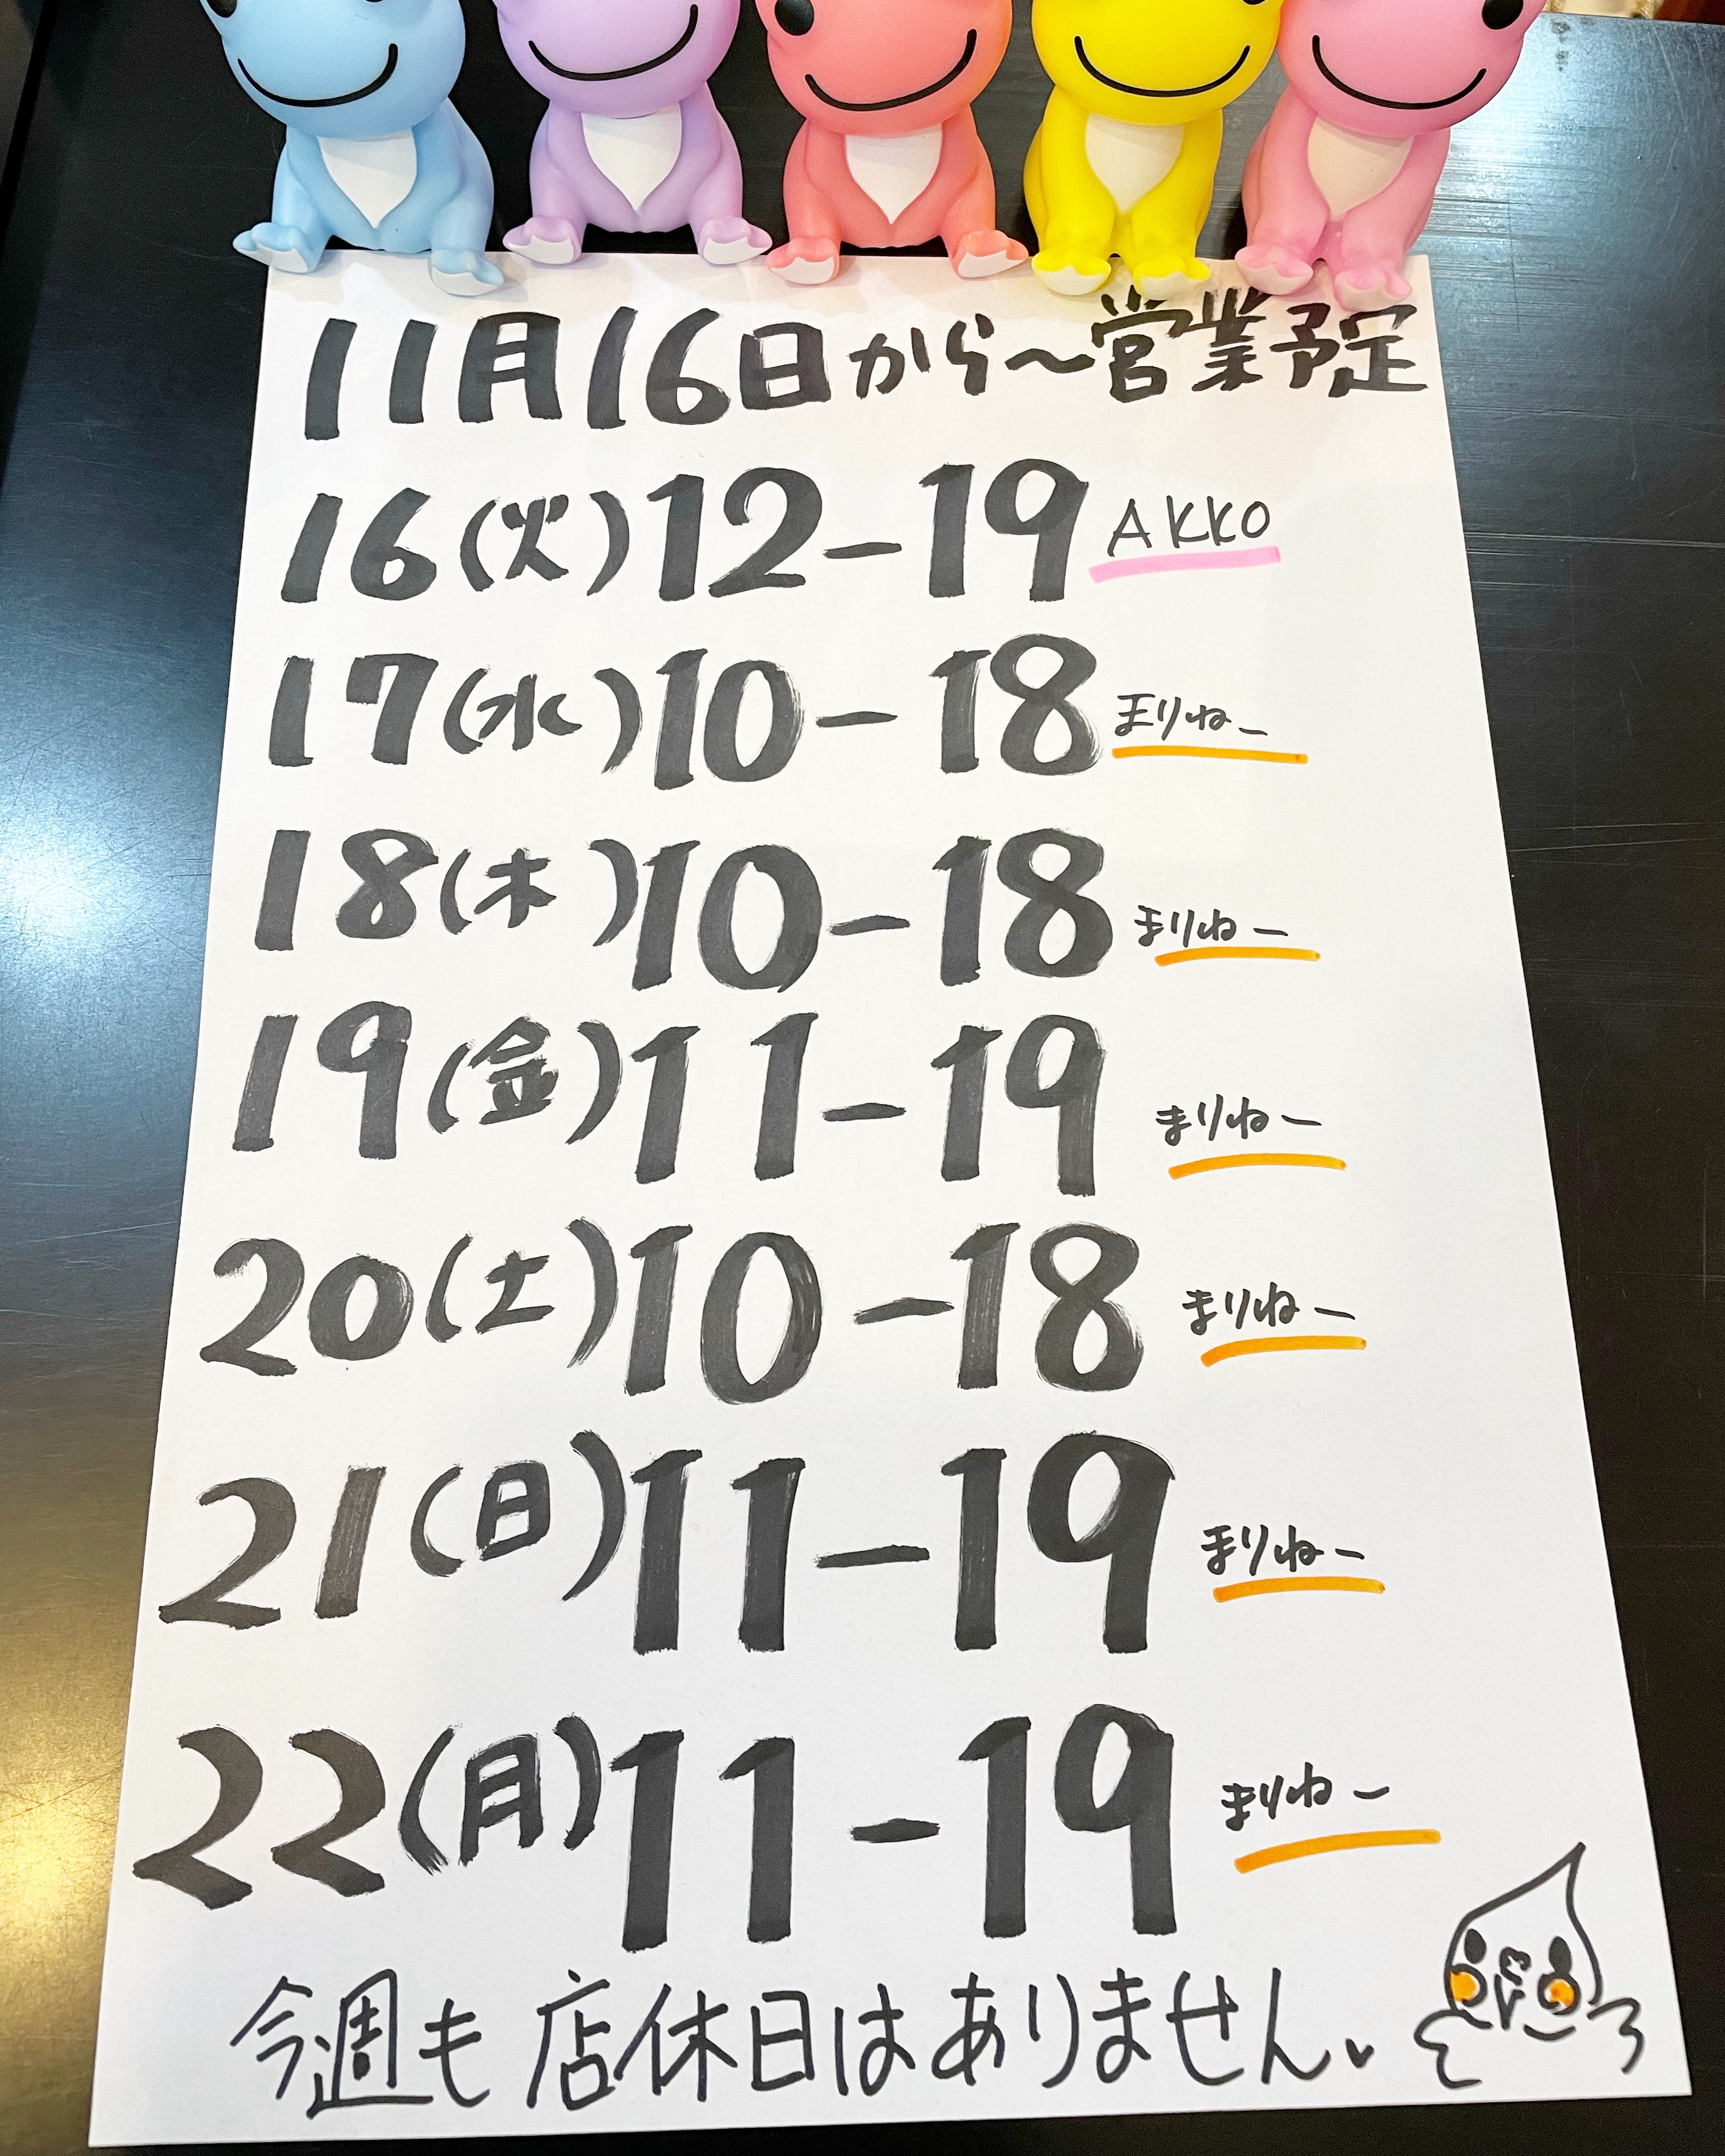 11月16日から〜営業予定
16(火)12-19 AKKO
17(水)10-18 まりねー
18(木)10-18 まりねー
19(金)11-19 まりねー
20(土)10-18 まりねー
21(日)11-19 まりねー
22(月)11-19 まりねー
今週も店休日はありません。